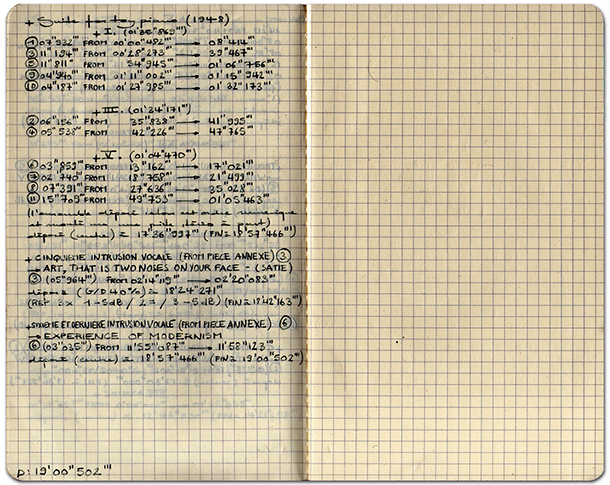 + Suite for toy piano (1948)
+ I. (01'35"869''')
① 07"932''' FROM 00'00"482''' → 08"414'''
③ 11"194''' FROM 00'28"273''' → 39"467'''
⑤ 11"811''' FROM 54"945''' → 01'06"756'''
⑨ 04"940''' FROM 01'11"002''' → 01'15"942'''
⑩ 04"187''' FROM 01'27"985''' → 01'32"173'''
+ III. (01'34"171''')
② 06"156''' FROM 35"839''' → 41"995'''
④ 05"538''' FROM 42"226''' → 47"765'''
+ V. (01'04"470''')
⑥ 03"859''' FROM 13"162''' → 17"021'''
⑦ 02"740''' FROM 18"758''' → 21"499'''
⑧ 07"391''' FROM 27"636''' → 35"028'''
⑪ 15"709''' FROM 49"753''' → 01'05"463'''
(l'ensemble déposé selon cet ordre numérique
et monté sur une piste à part)
déposé (centre) à 17'36"997''' (FIN à 18'57"466''')
+ CINQUIEME INTRUSION VOCALE (FROM PIECE ANNEXE) ③
→ ART, THAT IS TWO NOISES ON YOUR FACE - (SATIE)
③ (05"964''') FROM 02'14"119''' → 02'20"083'''
déposé (G/D 40%) à 18'24"271'''
(REP 3x 1 -5dB / 2 = / 3 -5dB) (FIN à 18'42"163''')
+ SIXIEME ET DERNIERE INTRUSION VOCALE (FROM PIECE ANNEXE) ⑥
→ EXPERIENCE OF MODERNISM
⑥ (03"035''') FROM 11'55"087''' → 11'58"123'''
déposé (centre) à 18'57"466''' (FIN à 19'00"502''')
D: 19'00"502'''